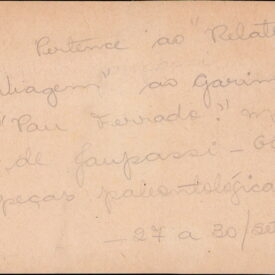 Pertence ao "Relat
Viagem" ao Garim
"Pau Ferrado" m
de Gaupassi - Go
peças paleontológica
- 27 a 30/50